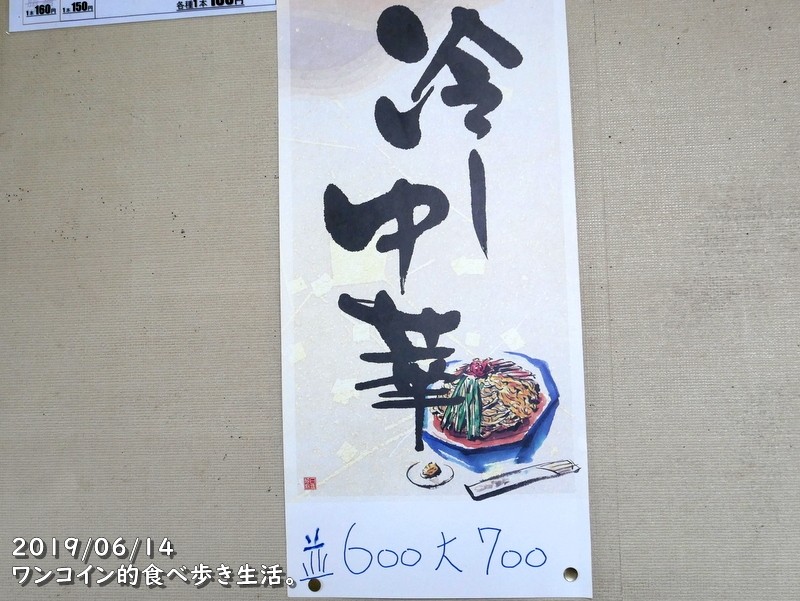 1本 160円 1本 150円 各種1本 100円
冷中華
並600大700
2019/06/14
ワンコイン的食べ歩き生活。